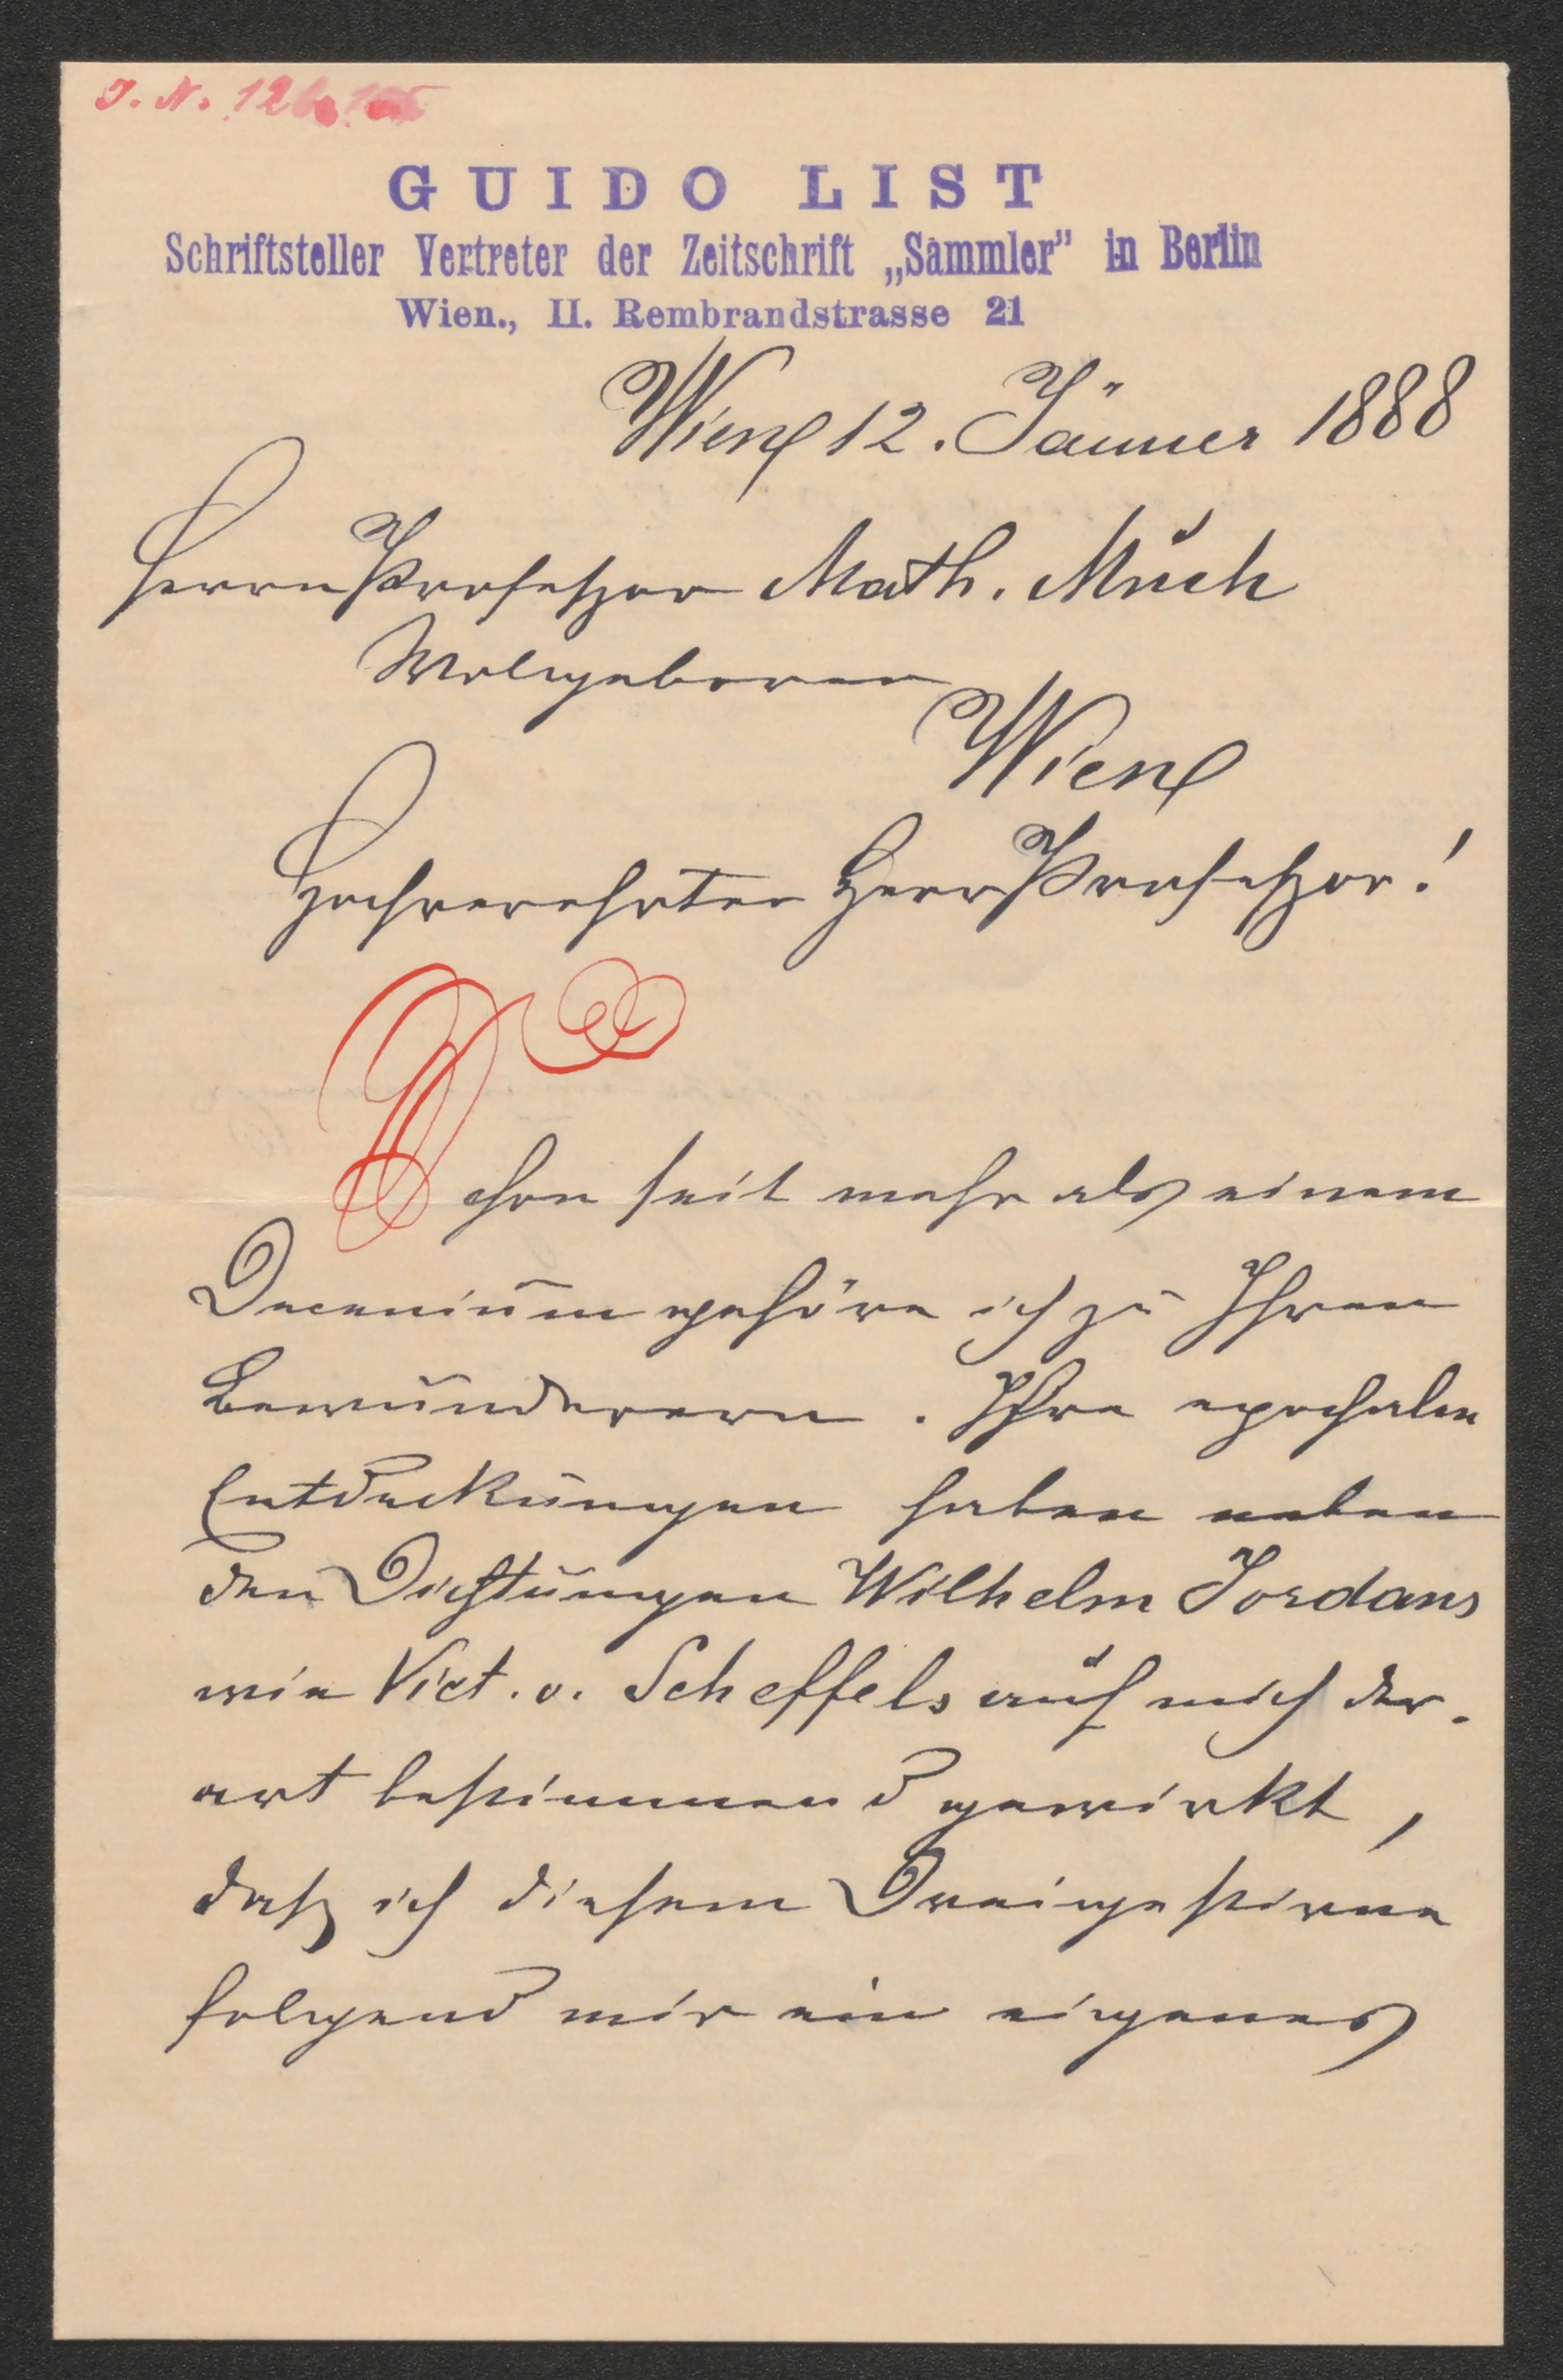 J. N. 126.
GUIDO LIST
Schriftsteller Vertreter der Zeitschrift „Sammler” in Berlin
Wien., II. Rembrandstrasse 21
Wien 12. Jänner 1888
Herrn Professor Math. Much
Wolgeboren
Wien
Hochverehrter Herr Professor!
Schon seit mehr als einem
Decenium gehöre ich zu Ihren
Bewunderern. Ihre epochalen
Entdeckungen haben neben
den Dichtungen Wilhelm Jordans
wie Vict. v. Scheffels auf mich der-
art bestimmend gewirkt,
daß ich diesem Dreigestirne
folgend mir ein eigenes